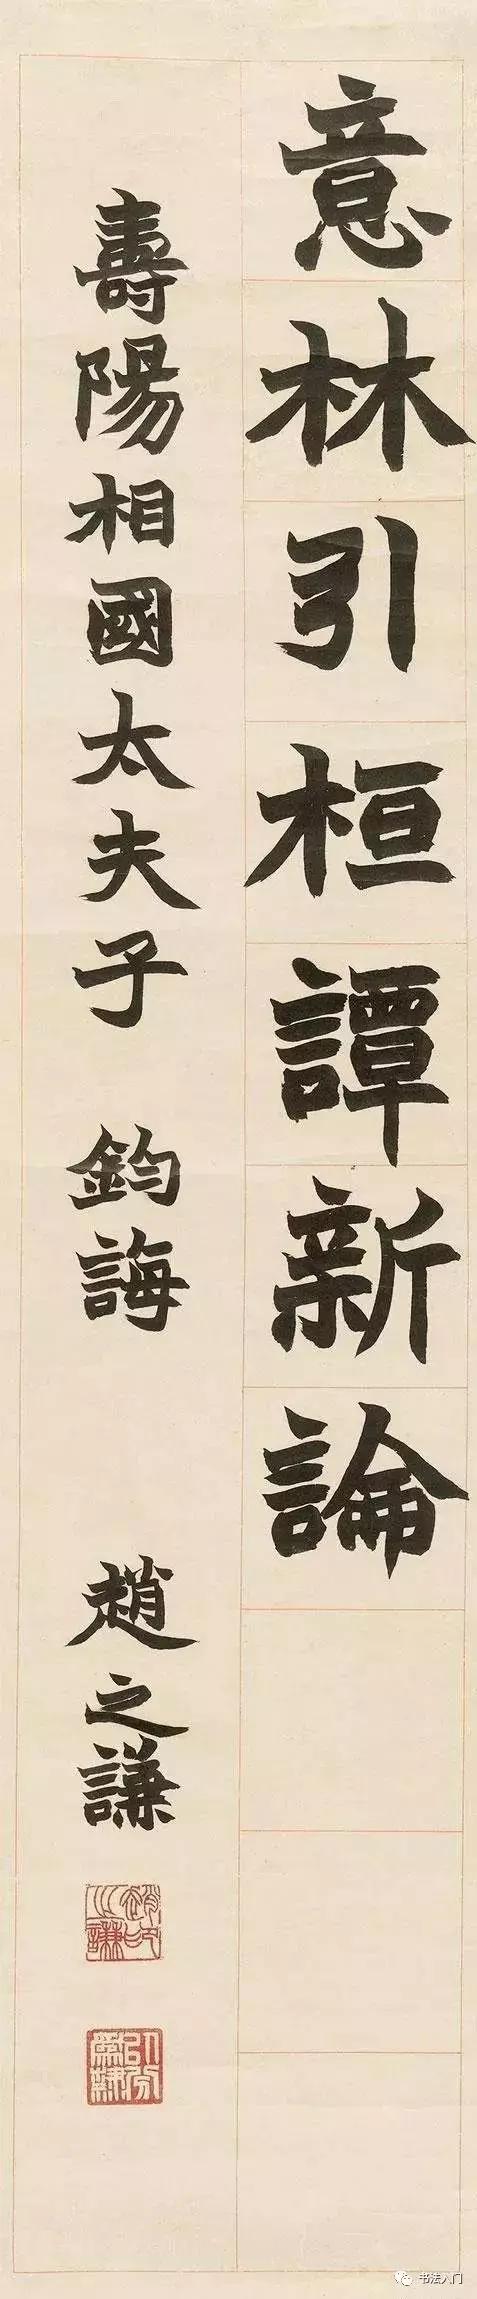 意林引桓譚新論
壽陽相國太夫子 鈞誨
趙之謙
书法入门